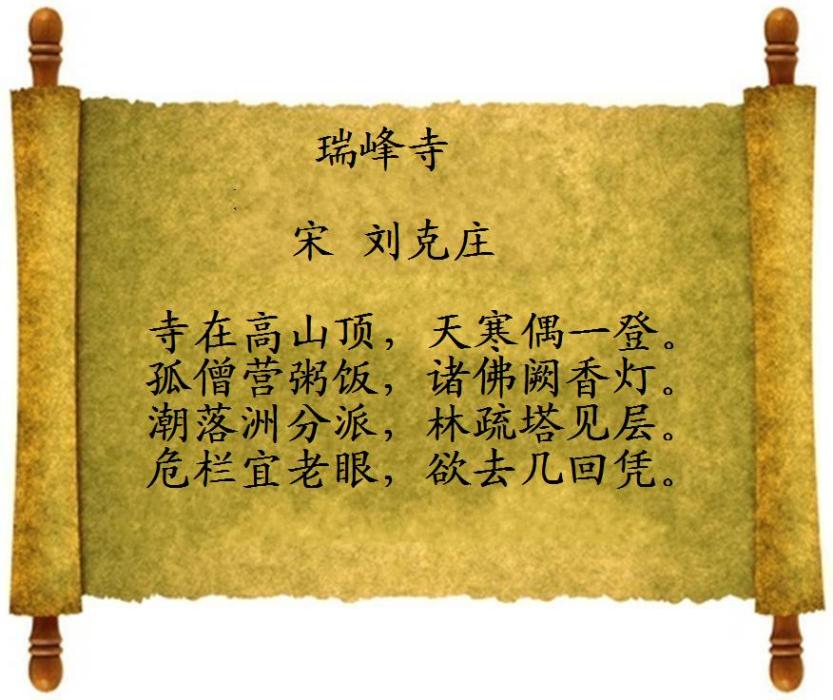 瑞峰寺
宋 刘克庄
寺在高山顶，天寒偶一登。
孤僧营粥饭，诸佛阙香灯。
潮落洲分派，林疏塔见层。
危栏宜老眼，欲去几回凭。